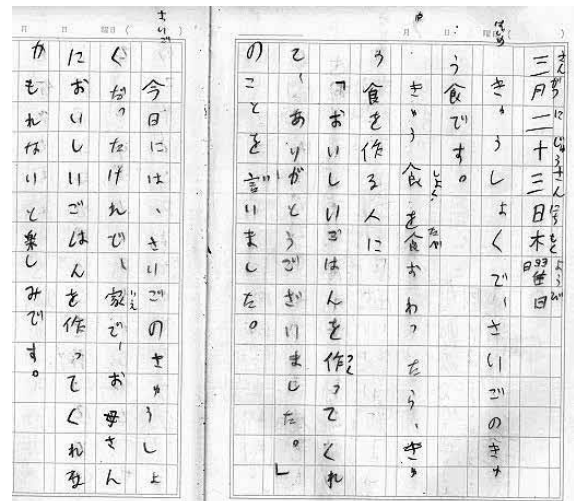 三月二十三日木曜日
きゅうしょくで、さいごのきゅ
う食です。
きゅう食を食おわったら、きゅ
う食を作る人に
「おいしいごはんを作ってくれ
て、ありがとうございました。」
のことを言いました。
今日には、さいごのきゅうしょ
くだったけれど、家で、お母さん
においしいごはんを作ってくれる
かもれないと楽しみです。